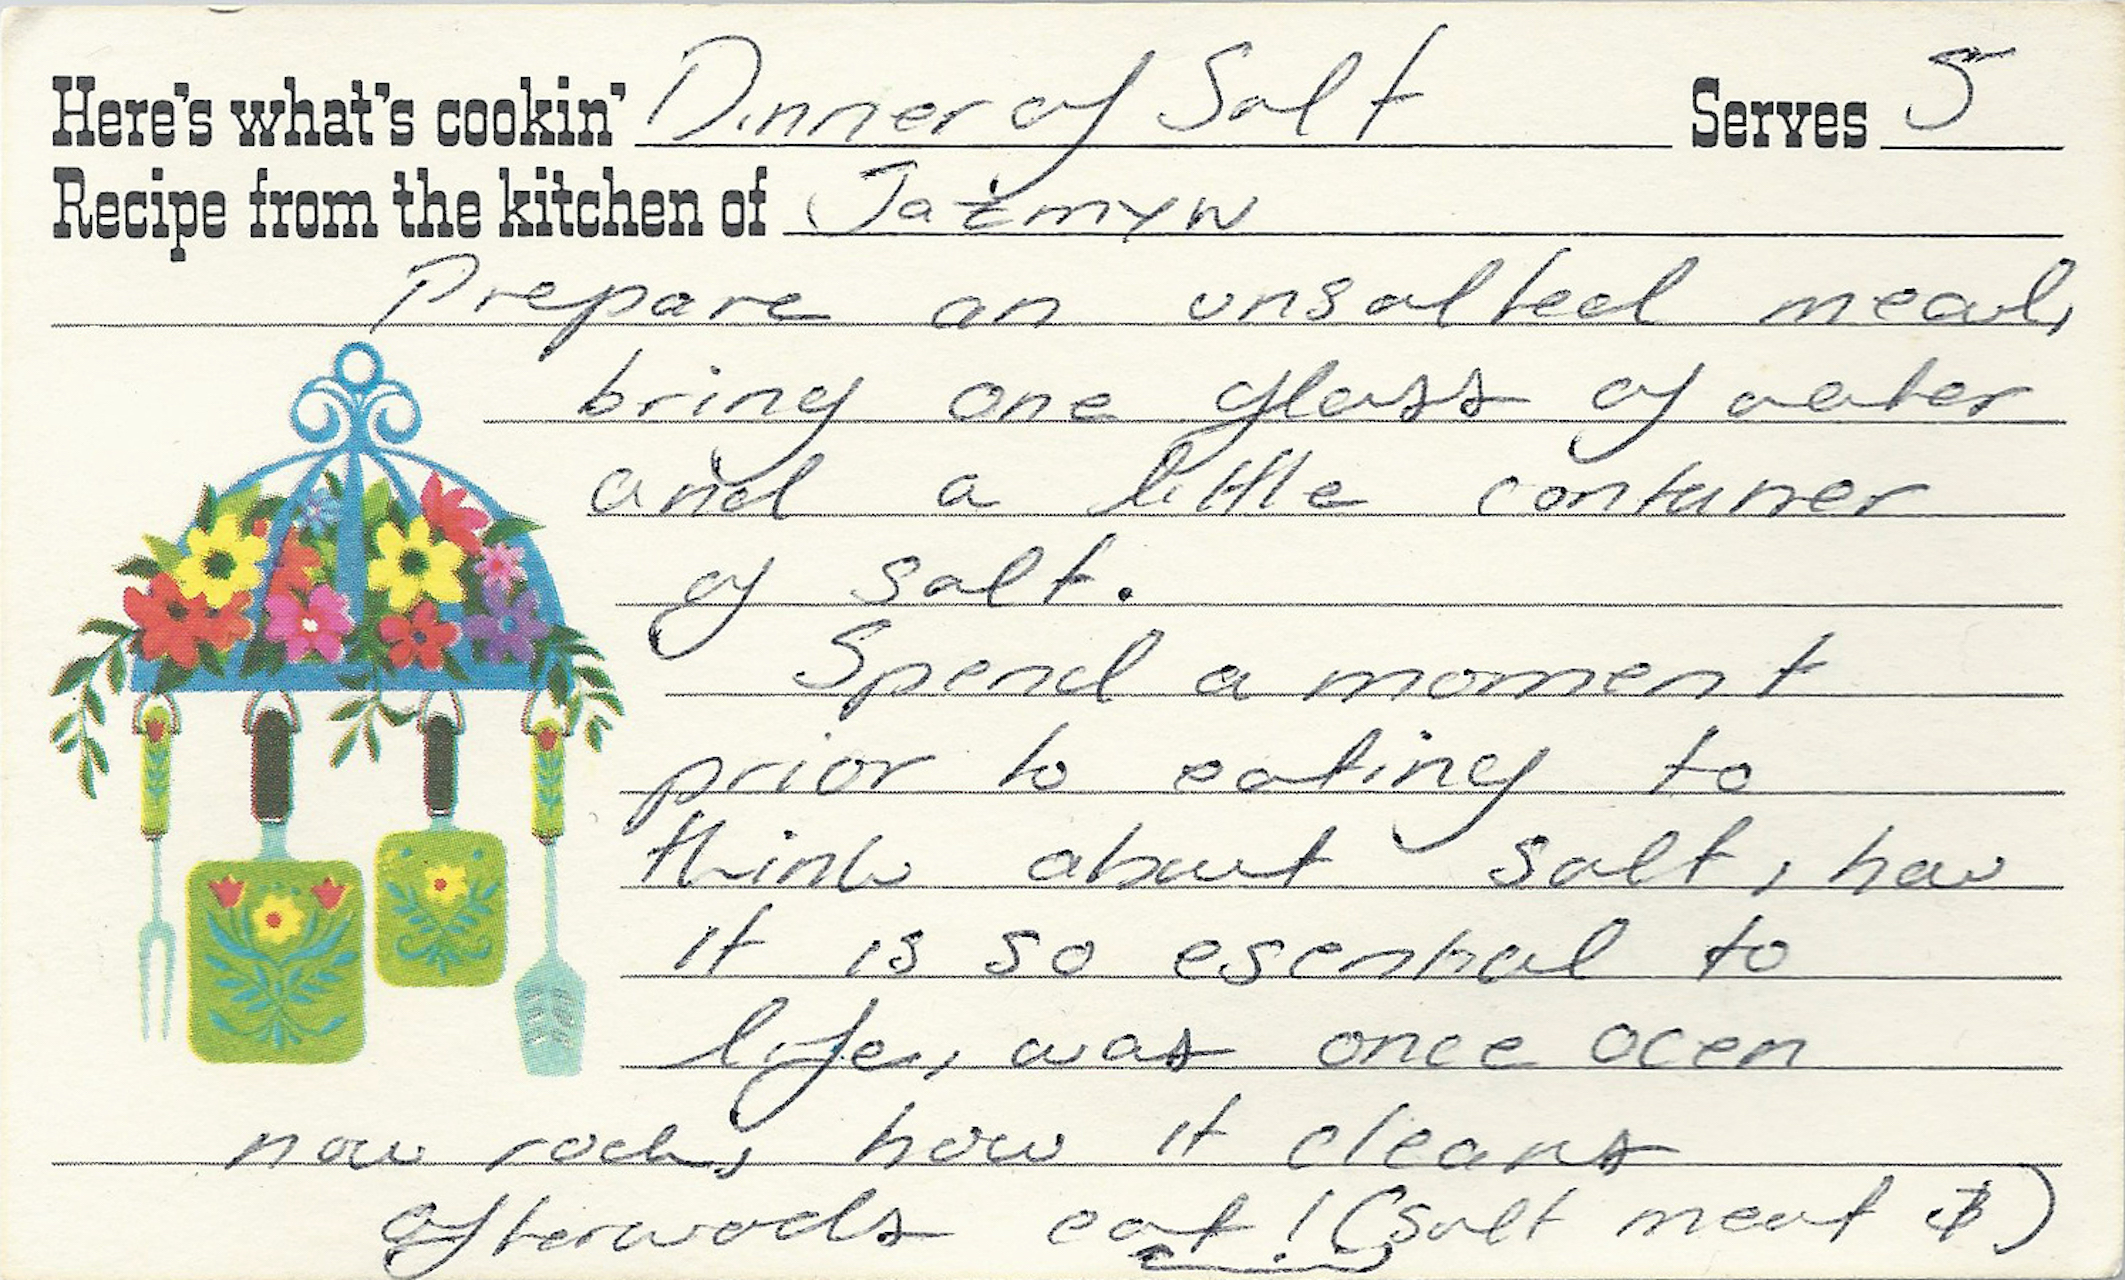 Here's what's cookin' Dinner of Salt Serves 5
Recipe from the kitchen of Jazmyn
Prepare an unsalted meal,
bring one glass of water
and a little container
of salt.
Spend a moment
prior to eating to
think about salt, how
it is so esential to
life, was once ocen
now rock, how it cleans
afterwods eat! (salt meat $)